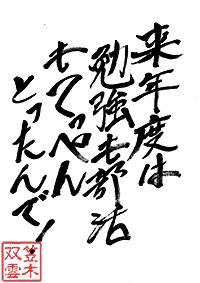 来年度は
勉強も部活
もてっぺん
とったんで！
笠木
双雲